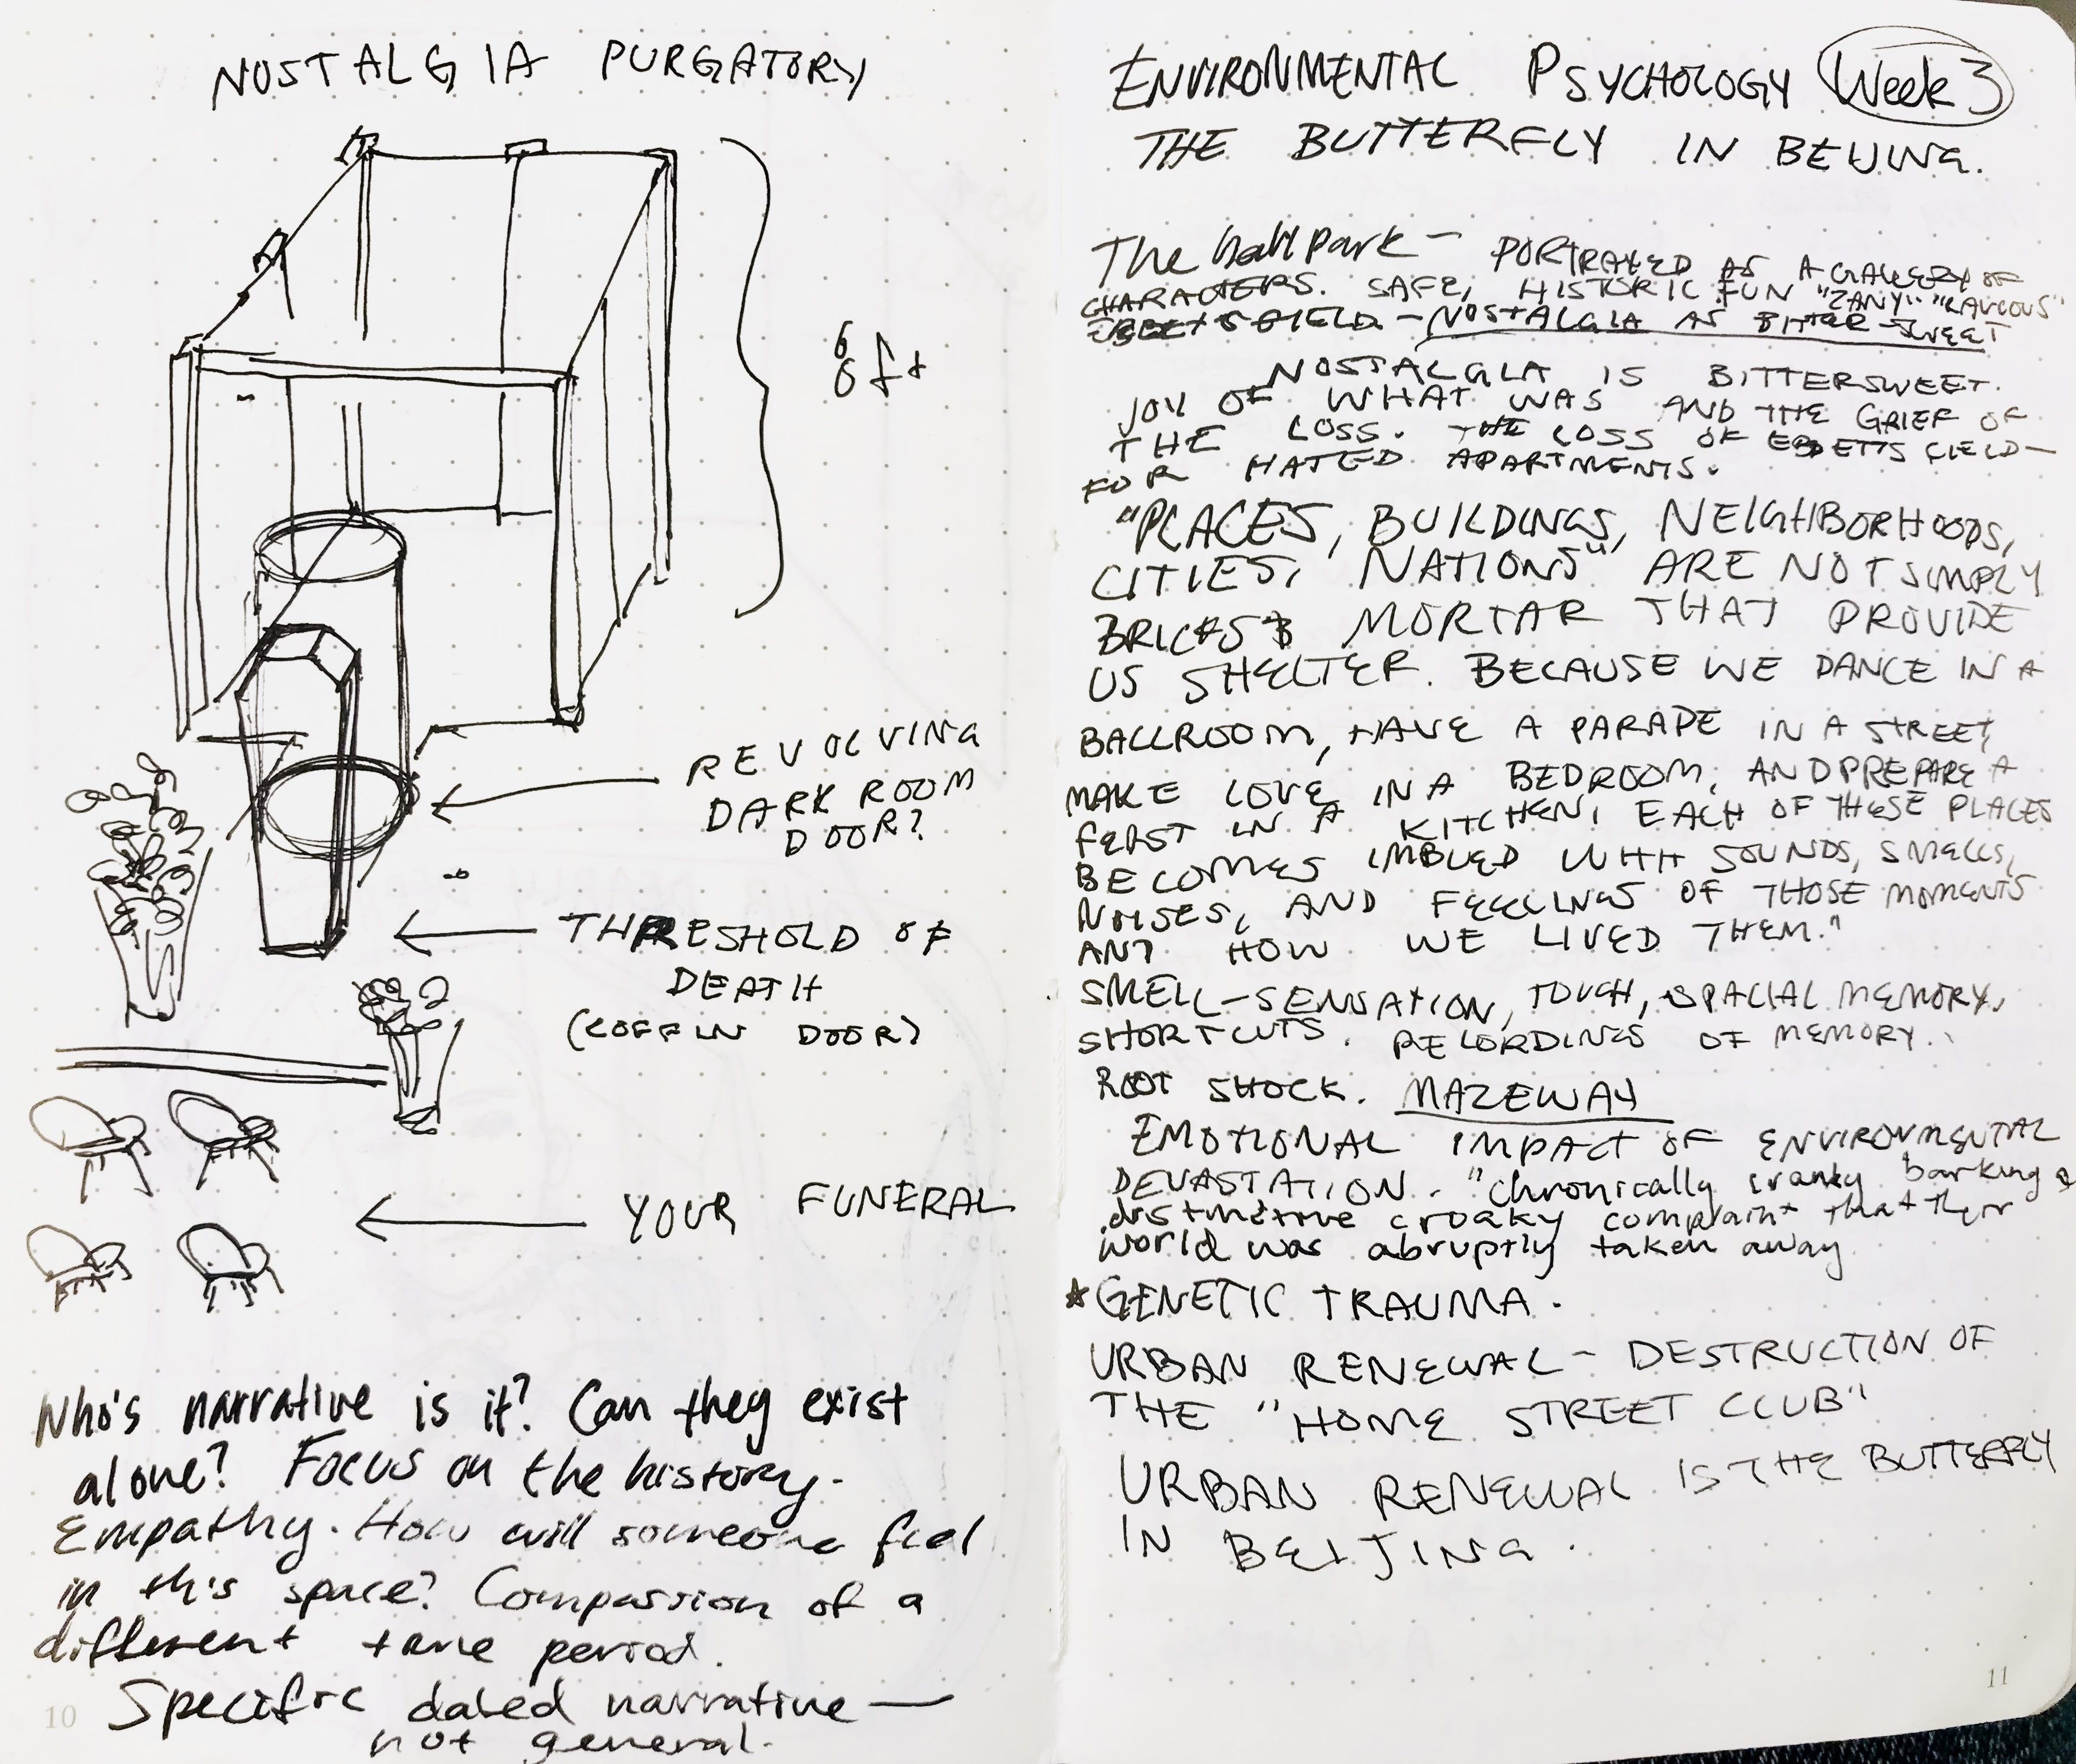 NOSTALGIA PURGATORY
6 ft
REVOLVING
DARK ROOM
DOOR?
THRESHOLD OF
DEATH
(COFFIN DOOR)
YOUR FUNERAL
Who's narrative is it? Can they exist
alone? Focus on the history.
Empathy. How will someone feel
in this space? Compassion of a
different time period.
Specific dated narrative —
not general.
10
ENVIRONMENTAL PSYCHOLOGY Week 3
THE BUTTERFLY IN BEIJING.
The ball park — PORTRAYED AS A GALLERY OF
CHARACTERS. SAFE, HISTORIC FUN "ZANY" "RAUCOUS"
FIELD — NOSTALGIA AS BITTER-SWEET
NOSTALGIA IS BITTERSWEET.
JOY OF WHAT WAS AND THE GRIEF OF
THE LOSS. THE LOSS OF EBBETTS FIELD —
FOR HATED APARTMENTS.
"PLACES, BUILDINGS, NEIGHBORHOODS,
CITIES, NATIONS" ARE NOT SIMPLY
BRICKS & MORTAR THAT PROVIDE
US SHELTER. BECAUSE WE DANCE IN A
BALLROOM, HAVE A PARADE IN A STREET,
MAKE LOVE IN A BEDROOM, AND PREPARE A
FEAST IN A KITCHEN, EACH OF THESE PLACES
BECOMES IMBUED WITH SOUNDS, SMELLS,
NOISES, AND FEELINGS OF THOSE MOMENTS
AND HOW WE LIVED THEM."
SMELL-SENSATION, TOUCH, SPACIAL MEMORY,
SHORTCUTS. RECORDINGS OF MEMORY.
ROOT SHOCK. MAZEWAY
EMOTIONAL IMPACT OF ENVIRONMENTAL
DEVASTATION. "chronically cranky barking a
distinctive croaky complaint that their
world was abruptly taken away
★GENETIC TRAUMA.
URBAN RENEWAL - DESTRUCTION OF
THE "HOME STREET CLUB"
URBAN RENEWAL IS THE BUTTERFLY
IN BEIJING.
11